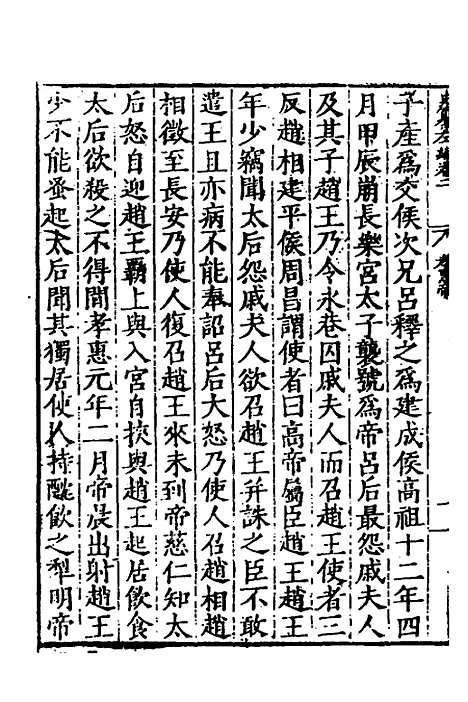 子產爲交侯次兄呂釋之爲建成侯高祖十二年四
月甲辰崩長樂宮太子襲號爲帝呂后最怨戚夫人
及其子趙王乃令永巷囚戚夫人而召趙王使者三
反趙相建平侯周昌謂使者曰高帝屬臣趙王趙王
年少竊聞太后怨戚夫人欲召趙王并誅之臣不敢
遣王且亦病不能奉詔呂后大怒乃使人召趙相趙
相徵至長安乃使人復召趙王來未到帝慈仁知太
后怒自迎趙王霸上與入宮自挾與趙王起居飲食
太后欲殺之不得間孝惠元年二月帝晨出射趙王
少不能蚤起太后聞其獨居使人持酖飲之犁明帝